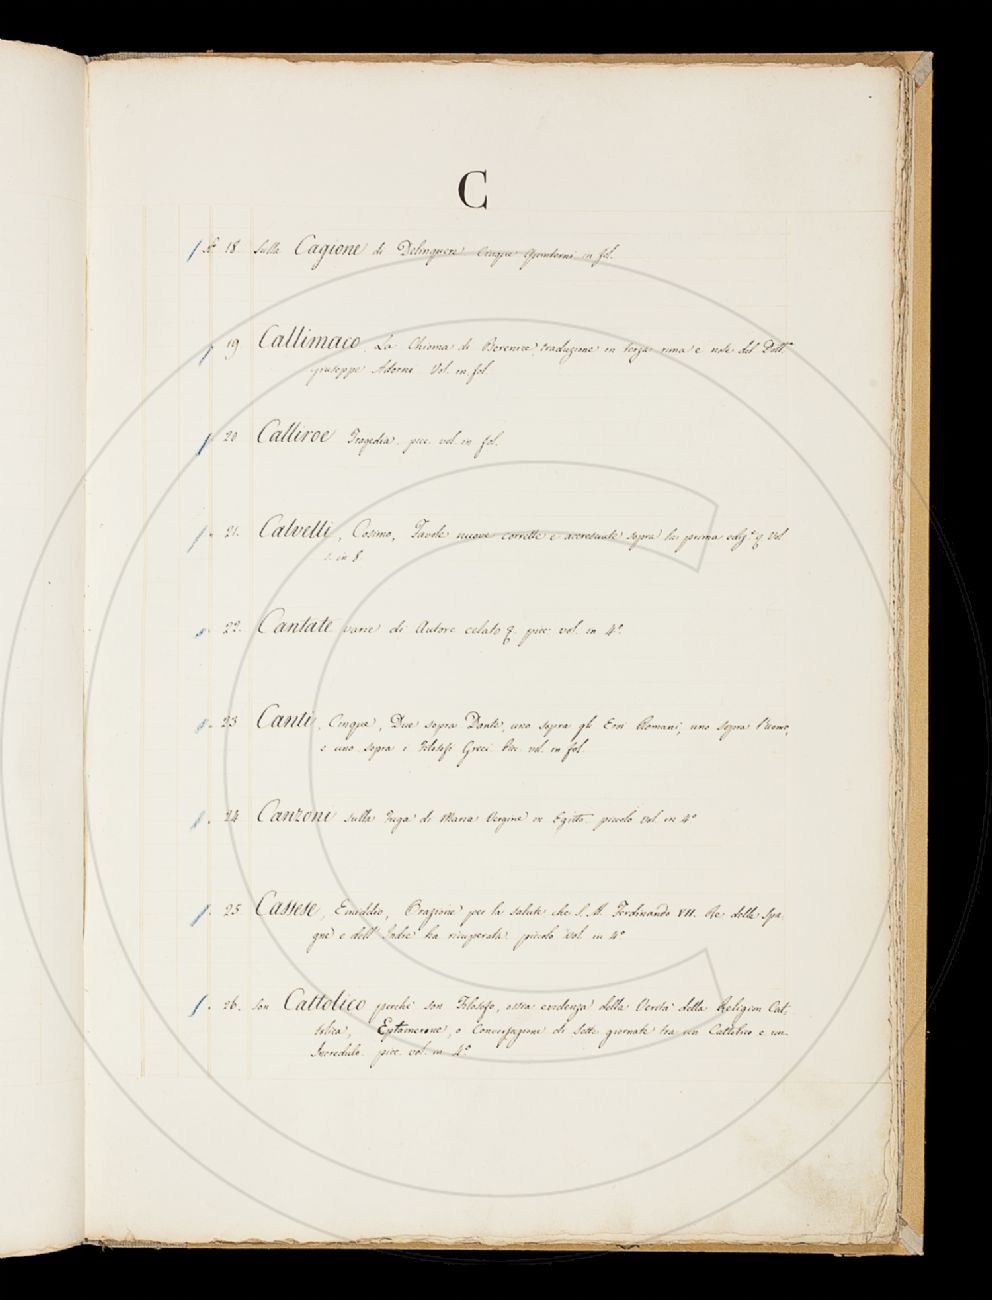 C
N. 18. Sulla Cagione di Delinquere Cinque Quinterni in fol.
19 Callimaco. La Chioma di Berenice traduzione in terza rima e note del Dott.
Giuseppe Adorni Vol. in fol.
20 Calliroe Tragedia. picc. vol. in fol.
21. Calvelli, Cosimo, Favole nuove corrette e accresciute sopra la prima ediz.e Vol.
2. in 8.
22. Cantate varie di Autore celato picc. vol. in 4°.
23 Canti, Cinque, Due sopra Dante, uno sopra gli Eroi Romani, uno sopra l'Uomo,
e uno sopra i Filosofi Greci. Picc. vol. in fol.
24 Canzoni sulla Fuga di Maria Vergine in Egitto piccolo vol. in 4°
25 Cassese, Emiddio, Orazione per la salute che S. M. Ferdinando VII. Re delle Spa-
gne e dell' Indie ha ricuperata. piccolo vol. in 4°
26. Son Cattolico perchè son Filosofo, ossia evidenza della Verità della Religion Cat-
tolica, Eptamerone, o Conversazione di Sette giornate tra un Cattolico e un
Incredulo. picc. vol. in 4°